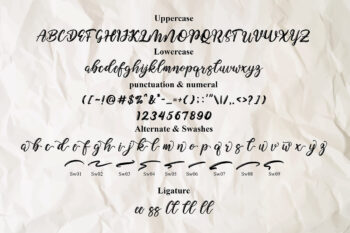 Uppercase
ABCDEFGHIJKLMNOPQRSTUVWXYZ
Lowercase
abcdefghijklmnopqrstuvwxyz
punctuation & numeral
1234567890
Alternate & Swashes
a b c d e f g h i j k l m n o p q r s t u v w x y z
Sw01 Sw02 Sw03 Sw04 Sw05 Sw06 Sw07 Sw08 Sw09
Ligature